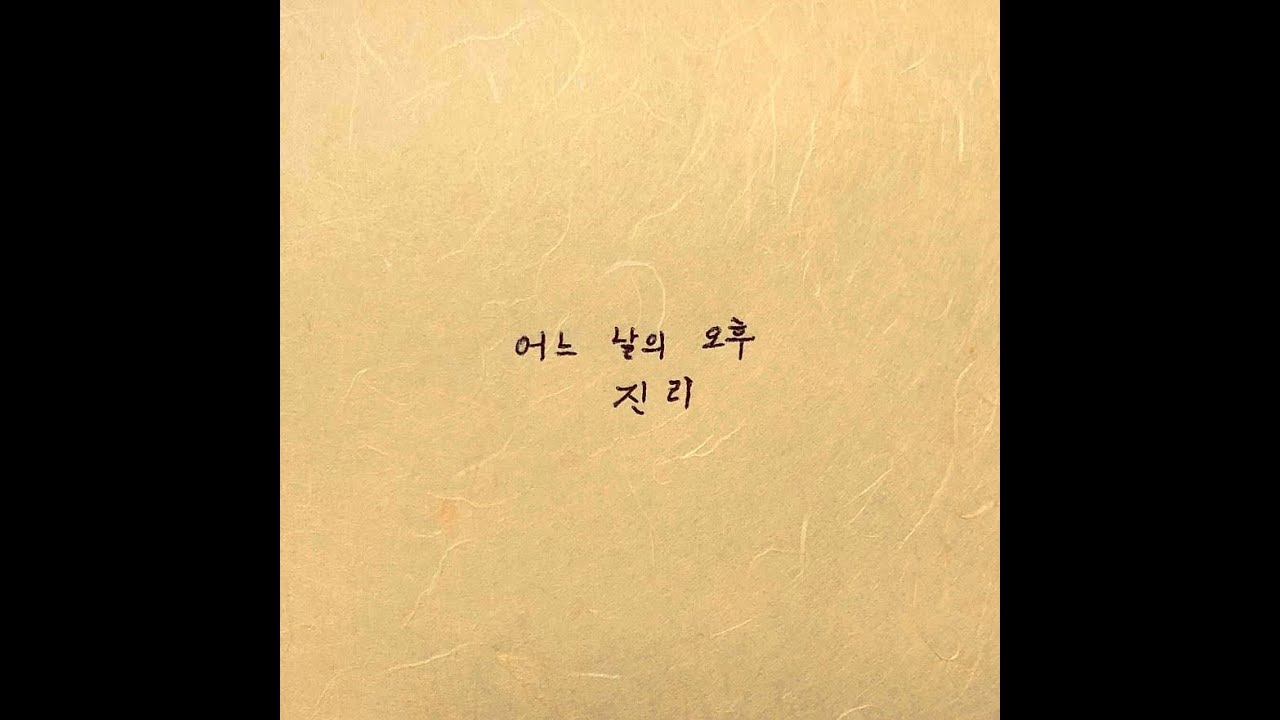 어느 날의 오후
진리